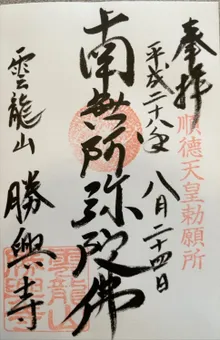 奉拝
順徳天皇勅願所
平成二十八年
八月二十四日
南無阿弥陀佛
雲龍山
勝興寺